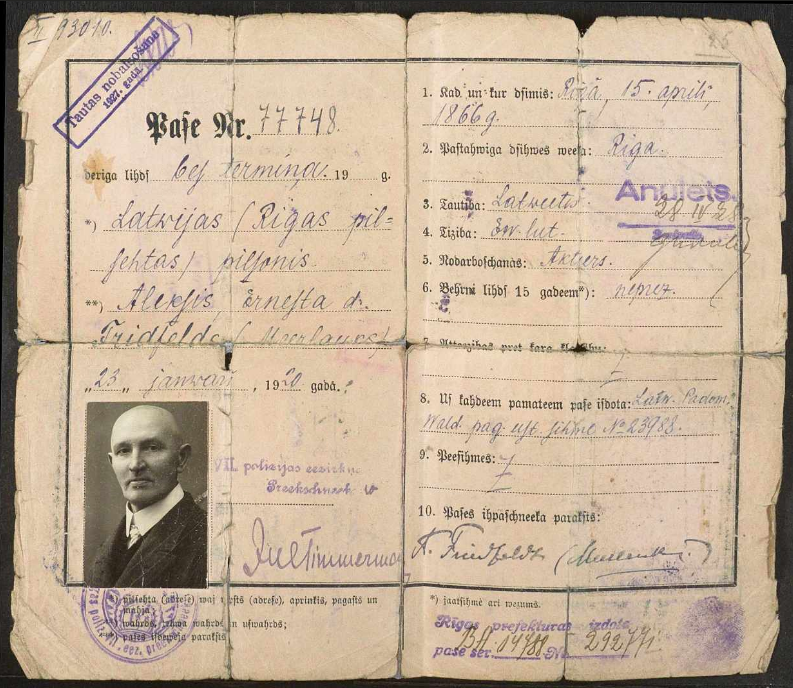 93010.
Tautas nobalsošana
1927. gadā.
Paſe Nr. 77748.
deriga lihdſ beſ termiņa. 19 g.
*) Latwijas (Rigas pil-
ſehtas) pilſonis
**) Aleksis, Ernesta d.
Fridfelds
"23" janwarī, 1920 gadā.
VII. polizijas eezirkņa
Preekschneeks
Timmerman
pilſehta (adreſe) waj (adreſe), aprinkis, pagaſts un
mahja
**) wahrds, tehwa wahrds un uſwahrds;
paſes iſdeweja parakſts
1. Kad un kur dſimis: Rigā, 15. aprilī,
1866 g.
2. Paſtahwiga dſihwes weeta: Riga.
Anulets.
28 IV 28
3. Tautiba: Latweetis.
4. Tiziba: Ew. lut.
5. Nodarboſchanās: Aktiers.
6. Behrni lihdſ 15 gadeem*): neņez.
7. Atteezibas pret kara
8. Uſ kahdeem pamateem paſe iſdota: Latw. Padom.
Wald. pag. uſt. ſihme № 23988.
9. Peeſihmes:
10. Paſes ihpaſchneeka parakſts:
A. Friedfeldt
*) jaatſihmē ari wezums.
Rigas prefekturas izdota
pase ser. BA 04788 № 29277